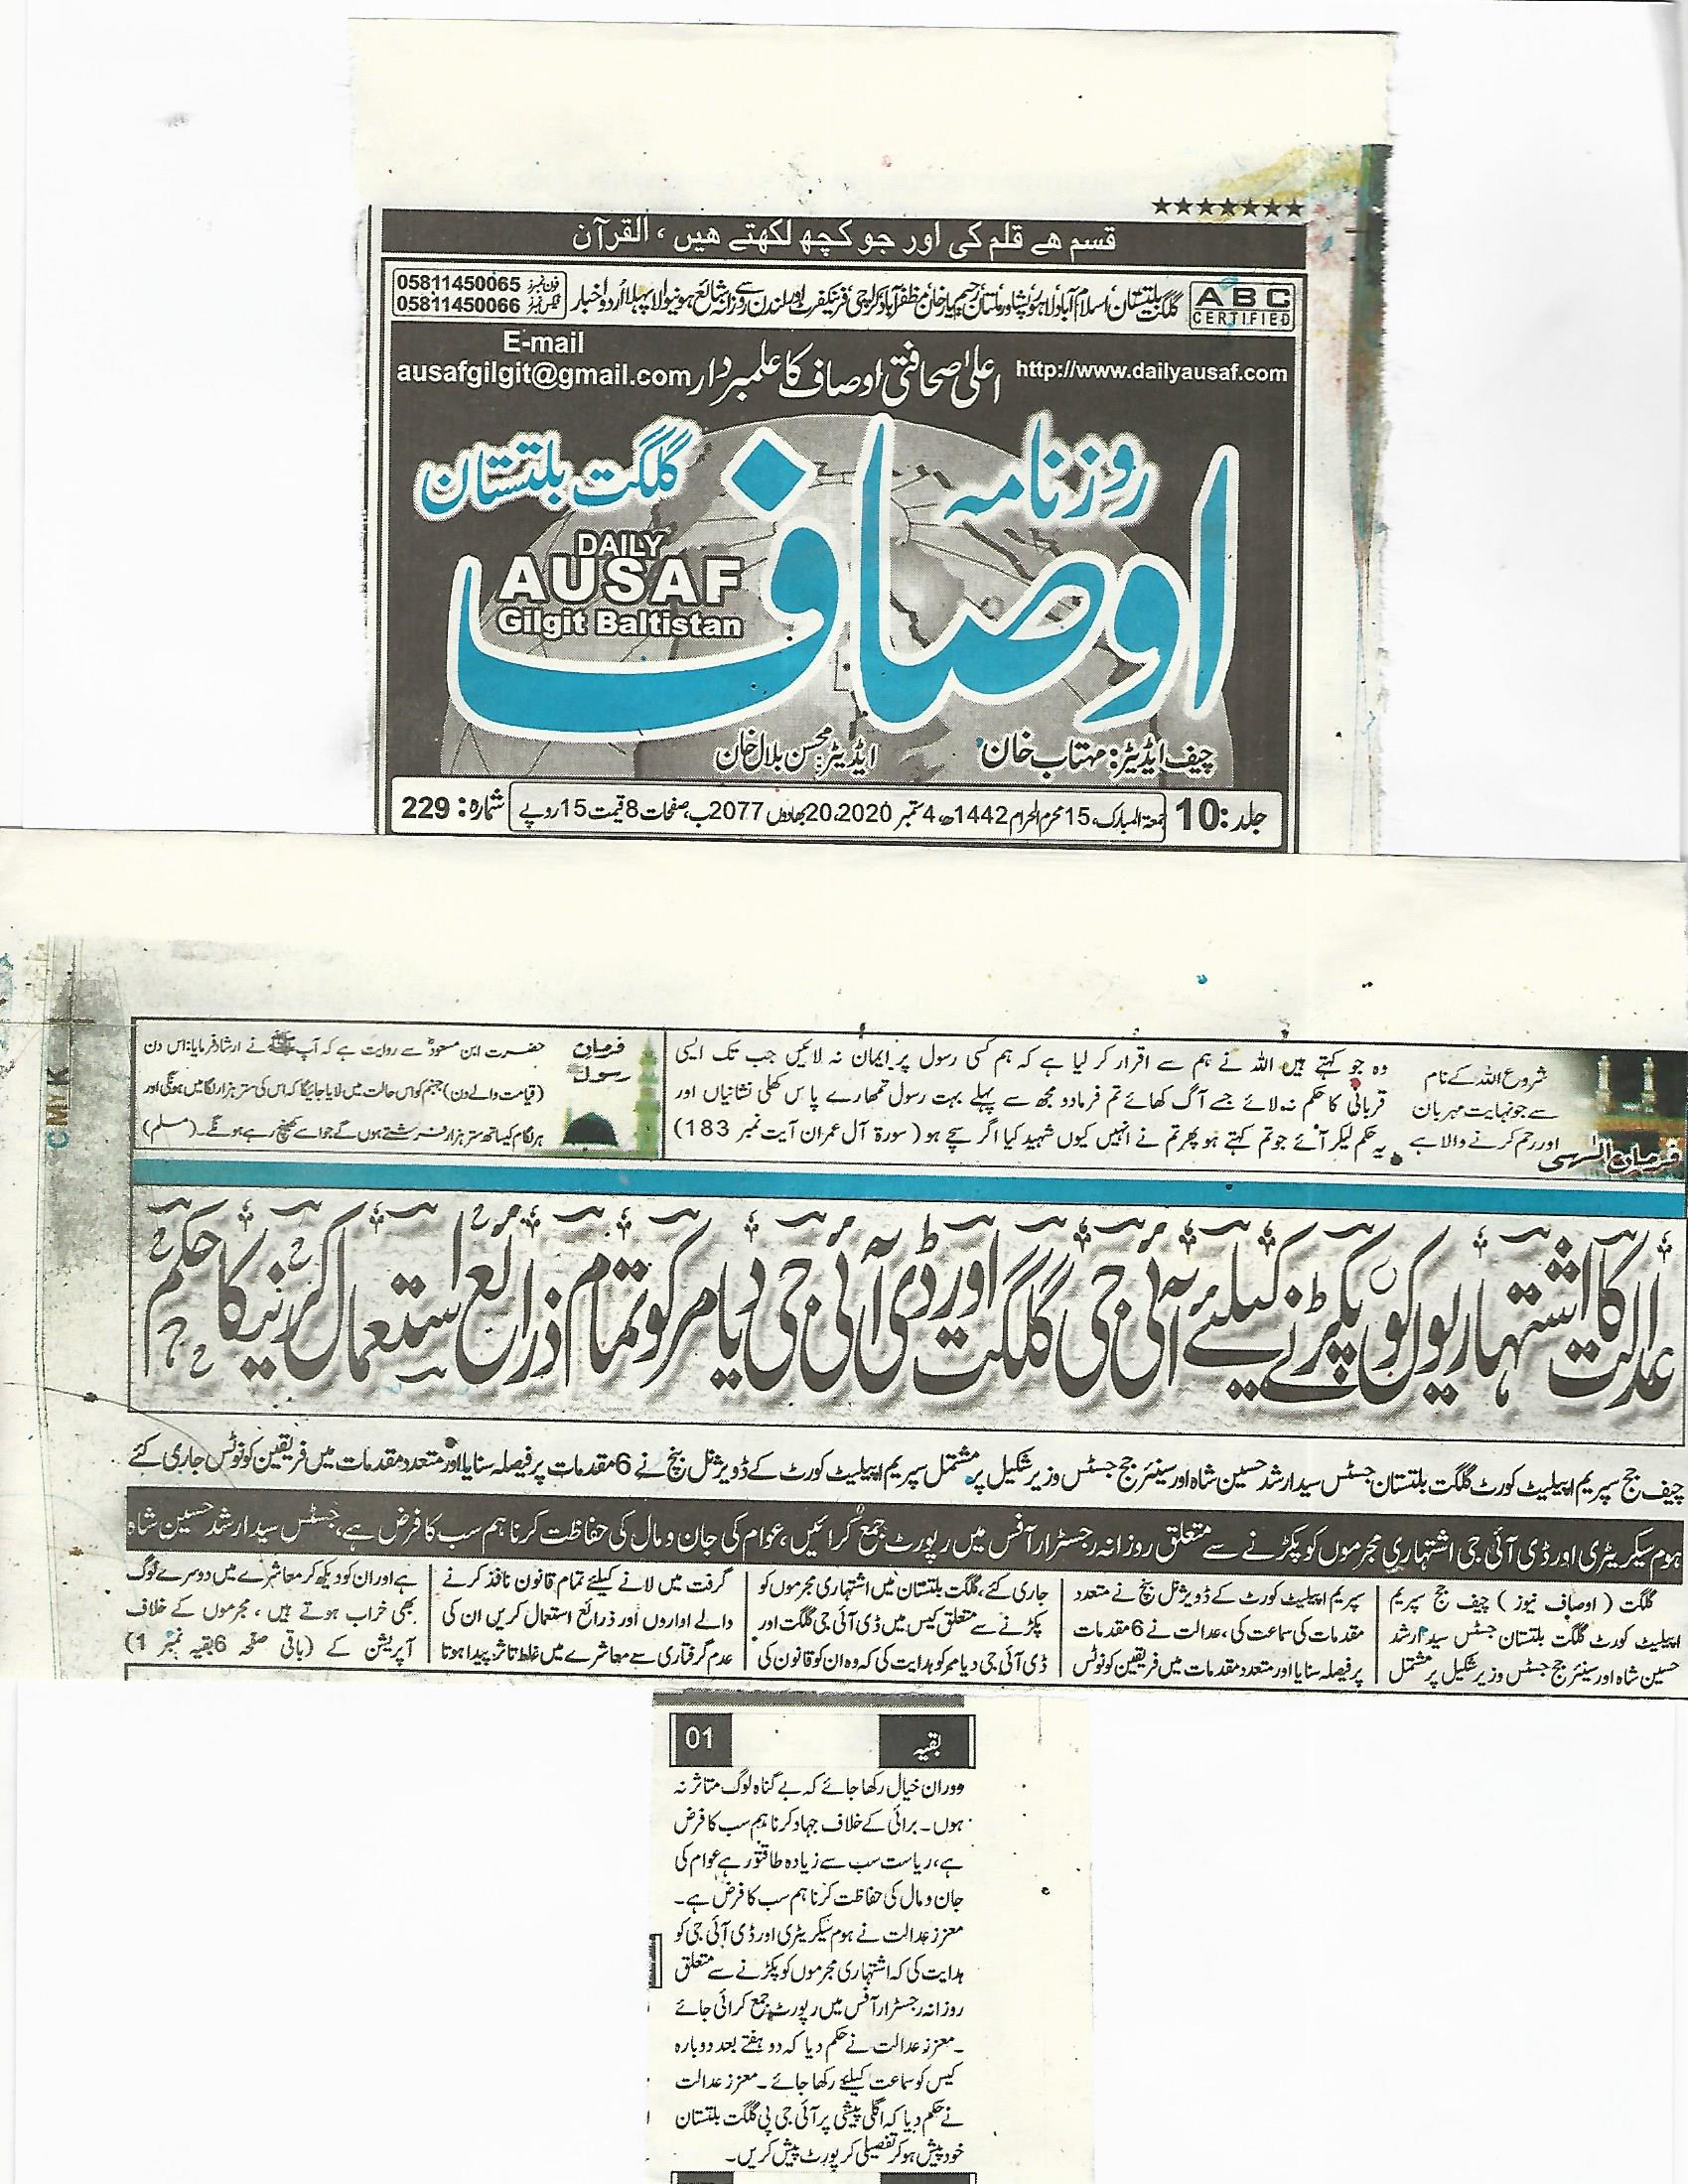 ★★★★★★★
قسم ھے قلم کی اور جو کچھ لکھتے ھیں ، القرآن
ABC CERTIFIED
گلگت بلتستان، اسلام آباد، لاہور، پشاور، ملتان، رحیم یار خان، مظفر آباد، کراچی، فرینکفرٹ اور لندن سے روزانہ شائع ہونیوالا پہلا اردو اخبار
فون نمبرز 05811450065
فیکس نمبرز 05811450066
http://www.dailyausaf.com
اعلیٰ صحافتی اوصاف کا علمبردار
E-mail
ausafgilgit@gmail.com
روزنامہ
اوصاف
گلگت بلتستان
DAILY
AUSAF
Gilgit Baltistan
چیف ایڈیٹر: مہتاب خان
ایڈیٹر: محسن بلال خان
جلد: 10
جمعۃ المبارک، 15 محرم الحرام 1442ھ، 4 ستمبر 2020، 20 بھادوں 2077ب، صفحات 8 قیمت 15 روپے
شمارہ: 229
CMYK
فرمان الٰہی
شروع اللہ کے نام
سے جو نہایت مہربان
اور رحم کرنے والا ہے
وہ جو کہتے ہیں اللہ نے ہم سے اقرار کر لیا ہے کہ ہم کسی رسول پر ایمان نہ لائیں جب تک ایسی
قربانی کا حکم نہ لائے جسے آگ کھائے تم فرمادو مجھ سے پہلے بہت رسول تمھارے پاس کھلی نشانیاں اور
یہ حکم لیکر آئے جو تم کہتے ہو پھر تم نے انہیں کیوں شہید کیا اگر سچے ہو (سورۃ آل عمران آیت نمبر 183)
فرمان
رسولؐ
حضرت ابن مسعودؓ سے روایت ہے کہ آپ ﷺ نے ارشاد فرمایا: اس دن
(قیامت والے دن) جہنم کو اس حالت میں لایا جائیگا کہ اس کی ستر ہزار لگامیں ہونگی اور
ہر لگام کیساتھ ستر ہزار فرشتے ہوں گے جو اسے کھینچ رہے ہونگے۔ (مسلم)
عدالت کا اشتہاریوں کو پکڑنے کیلئے آئی جی گلگت اور ڈی آئی جی دیامر کو تمام ذرائع استعمال کرنیکا حکم
چیف جج سپریم اپیلیٹ کورٹ گلگت بلتستان جسٹس سید ارشد حسین شاہ اور سینئر جج جسٹس وزیر شکیل پر مشتمل سپریم اپیلیٹ کورٹ کے ڈویژنل بنچ نے 6 مقدمات پر فیصلہ سنایا اور متعدد مقدمات میں فریقین کو نوٹس جاری کئے
ہوم سیکریٹری اور ڈی آئی جی اشتہاری مجرموں کو پکڑنے سے متعلق روزانہ رجسٹرار آفس میں رپورٹ جمع کرائیں، عوام کی جان و مال کی حفاظت کرنا ہم سب کا فرض ہے، جسٹس سید ارشد حسین شاہ
گلگت (اوصاف نیوز) چیف جج سپریم
اپیلیٹ کورٹ گلگت بلتستان جسٹس سید ارشد
حسین شاہ اور سینئر جج جسٹس وزیر شکیل پر مشتمل
سپریم اپیلیٹ کورٹ کے ڈویژنل بنچ نے متعدد
مقدمات کی سماعت کی، عدالت نے 6 مقدمات
پر فیصلہ سنایا اور متعدد مقدمات میں فریقین کو نوٹس
جاری کئے، گلگت بلتستان میں اشتہاری مجرموں کو
پکڑنے سے متعلق کیس میں ڈی آئی جی گلگت اور
ڈی آئی جی دیامر کو ہدایت کی کہ وہ ان کو قانون کی
گرفت میں لانے کیلئے تمام قانون نافذ کرنے
والے اداروں اور ذرائع استعمال کریں ان کی
عدم گرفتاری سے معاشرے میں غلط تاثر پیدا ہوتا
ہے اور ان کو دیکھ کر معاشرے میں دوسرے لوگ
بھی خراب ہوتے ہیں ، مجرموں کے خلاف
آپریشن کے (باقی صفحہ 6 بقیہ نمبر 1)
بقیہ 01
دوران خیال رکھا جائے کہ بے گناہ لوگ متاثر نہ
ہوں۔ برائی کے خلاف جہاد کرنا ہم سب کا فرض
ہے، ریاست سب سے زیادہ طاقتور ہے عوام کی
جان و مال کی حفاظت کرنا ہم سب کا فرض ہے۔
معزز عدالت نے ہوم سیکریٹری اور ڈی آئی جی کو
ہدایت کی کہ اشتہاری مجرموں کو پکڑنے سے متعلق
روزانہ رجسٹرار آفس میں رپورٹ جمع کرائی جائے
۔معزز عدالت نے حکم دیا کہ دو ہفتے بعد دوبارہ
کیس کو سماعت کیلئے رکھا جائے۔ معزز عدالت
نے حکم دیا کہ اگلی پیشی پر آئی جی پی گلگت بلتستان
خود پیش ہو کر تفصیلی رپورٹ پیش کریں۔